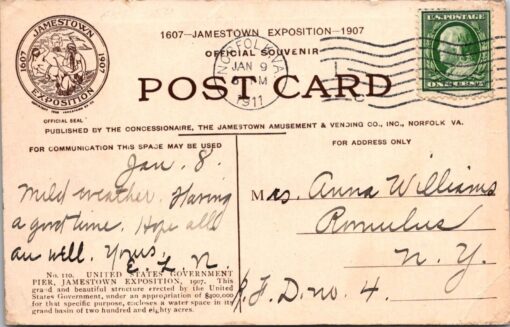 1607—JAMESTOWN EXPOSITION—1907
OFFICIAL SOUVENIR
POST CARD
JAMESTOWN
1607
1907
EXPOSITION
OFFICIAL SEAL
NORFOLK, VA.
JAN 9
M
1911
U.S. POSTAGE
ONE CENT
PUBLISHED BY THE CONCESSIONAIRE, THE JAMESTOWN AMUSEMENT & VENDING CO., INC., NORFOLK VA.
FOR COMMUNICATION THIS SPACE MAY BE USED
FOR ADDRESS ONLY
Jan. 8.
Mild weather. Having
a good time. Hope all
are well. Yours,
E. L. R.
No. 110. UNITED STATES GOVERNMENT
PIER, JAMESTOWN EXPOSITION, 1907. This
grand and beautiful structure erected by the United
States Government, under an appropriation of $400,000
for that specific purpose, encloses a water space in its
grand basin of two hundred and eighty acres.
Mrs. Anna Williams
Romulus
N. Y.
R. F. D. no. 4.